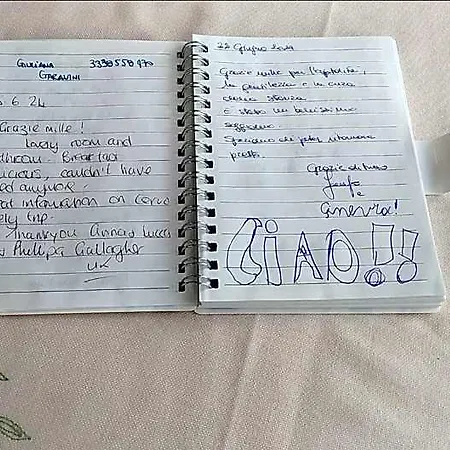 GIULIANA 3339558970
GARAVINI
6 24
Grazie mille!
lovely room and
bathroom. Breakfast
couldn't have
information on
trip.
Thankyou
Phillipa Gallagher
UK
22 Giugno 2024
Grazie mille per l'ospitalità,
la gentilezza e la cura
della stanza.
È stato un bellissimo
soggiorno.
Speriamo di poter ritornare
presto.
Grazie di tutto
e
Ginevra!
CIAO!!